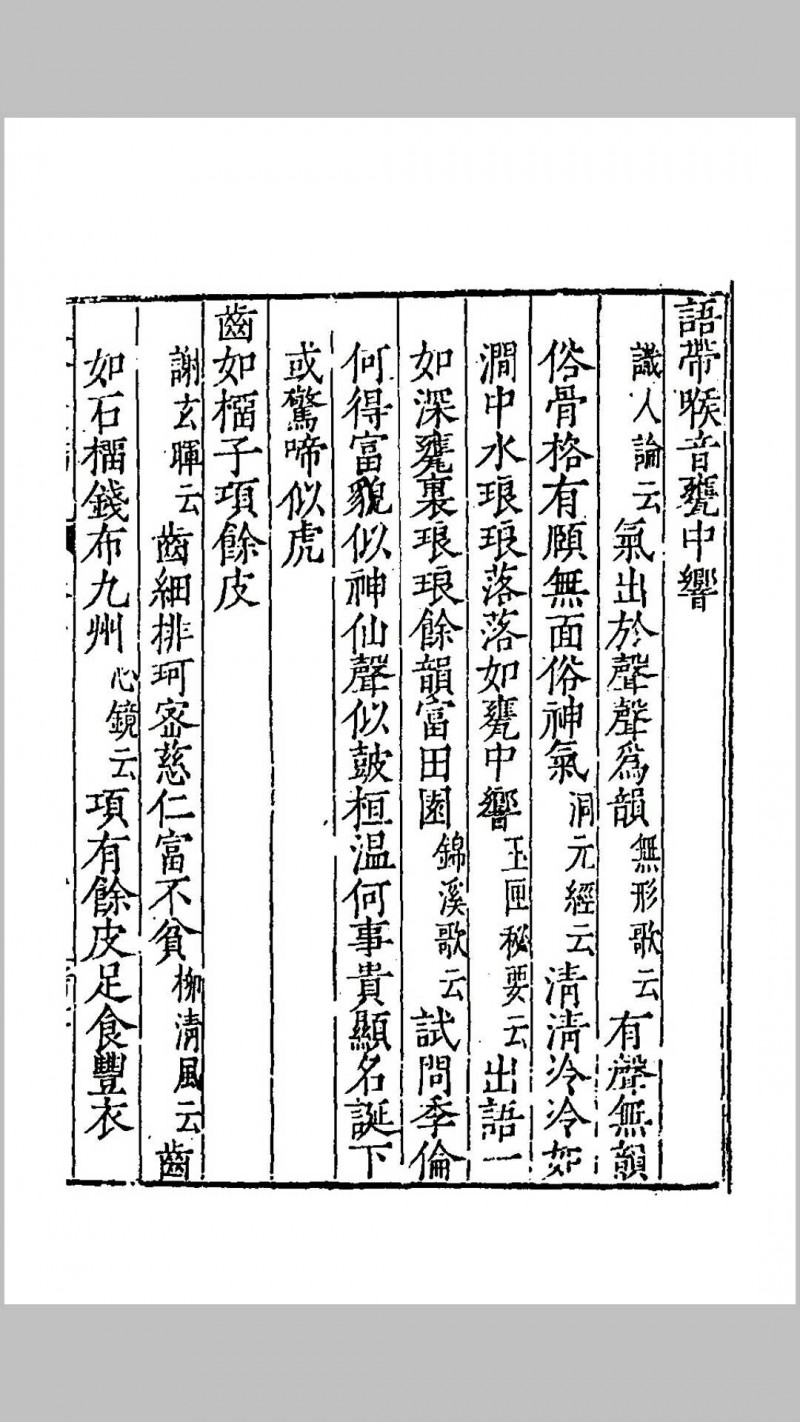 語帶喉音甕中響
識人論云氣出於聲聲爲韻無形歌云有聲無韻
俗骨格有頤無面俗神氣洞元經云清清泠泠如
澗中水琅琅落落如甕中響玉匣秘要云出語一
如深甕裏琅琅餘韻富田園錦溪歌云試問季倫
何得富貌似神仙聲似鼓桓温何事貴顯名誕下
或驚啼似虎
齒如榴子項餘皮
謝玄暉云齒細排珂宻慈仁富不貧柳清風云齒
如石榴錢布九州心鏡云項有餘皮足食豐衣